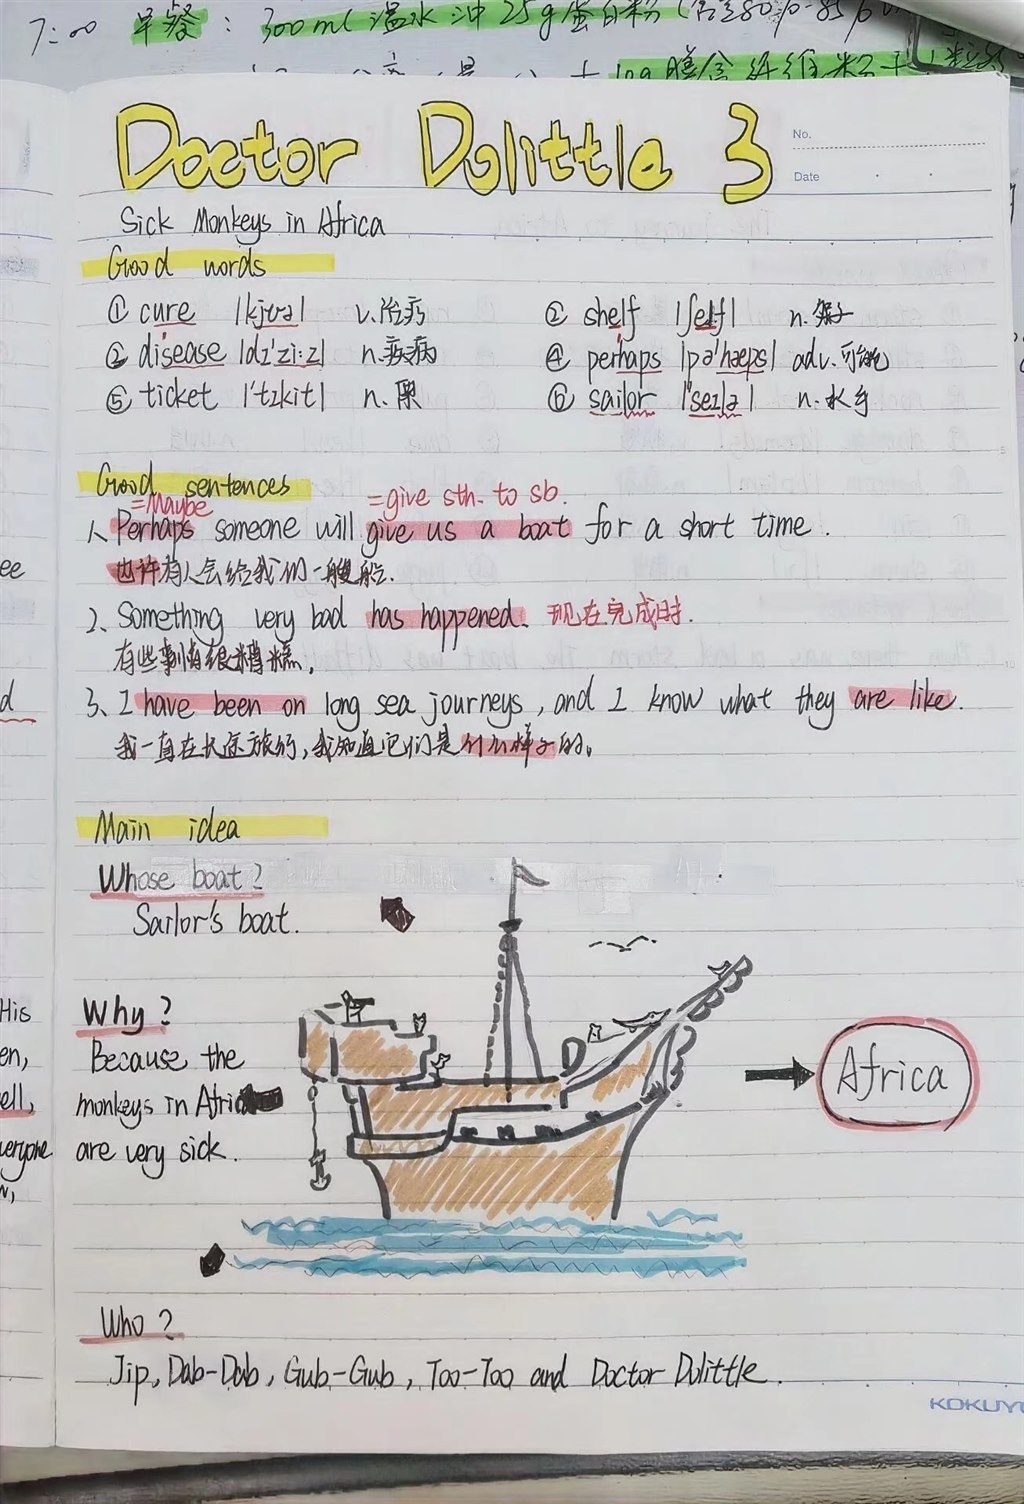 7:00 早餐: 300ml 温水冲25g蛋白粉(含量80%-85%
10g膳食纤维粉+1粒
Doctor Dolittle 3
No.
Date
Sick Monkeys in Africa
Good words
① cure |kjʊə| v.治疗 ② shelf |ʃelf| n.架子
③ disease |dɪ'zi:z| n.疾病 ④ perhaps |pə'hæps| adv.可能
⑤ ticket |'tɪkit| n.票 ⑥ sailor |'seɪlə| n.水手
Good sentences
=Maybe =give sth. to sb.
1、Perhaps someone will give us a boat for a short time.
也许有人会给我们一艘船.
2、Something very bad has happened. 现在完成时.
有些事情很糟糕.
3、I have been on long sea journeys, and I know what they are like.
我一直在长途旅行,我知道它们是什么样子的。
Main idea
Whose boat?
Sailor's boat.
His
Why?
en,
Because the
Africa
ell,
monkeys in Afri
veryone
are very sick.
Who?
Jip, Dab-Dab, Gub-Gub, Too-Too and Doctor Dolittle.
KOKUYO
ee
d